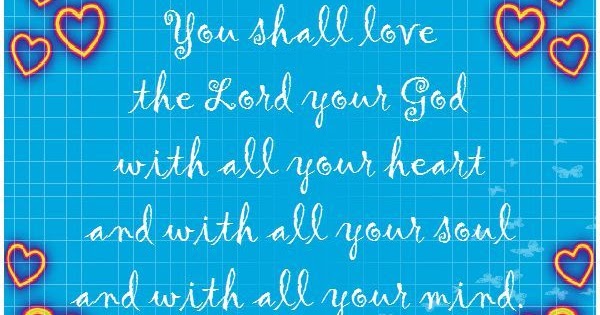 You shall love
the Lord your God
with all your heart
and with all your soul
and with all your mind.